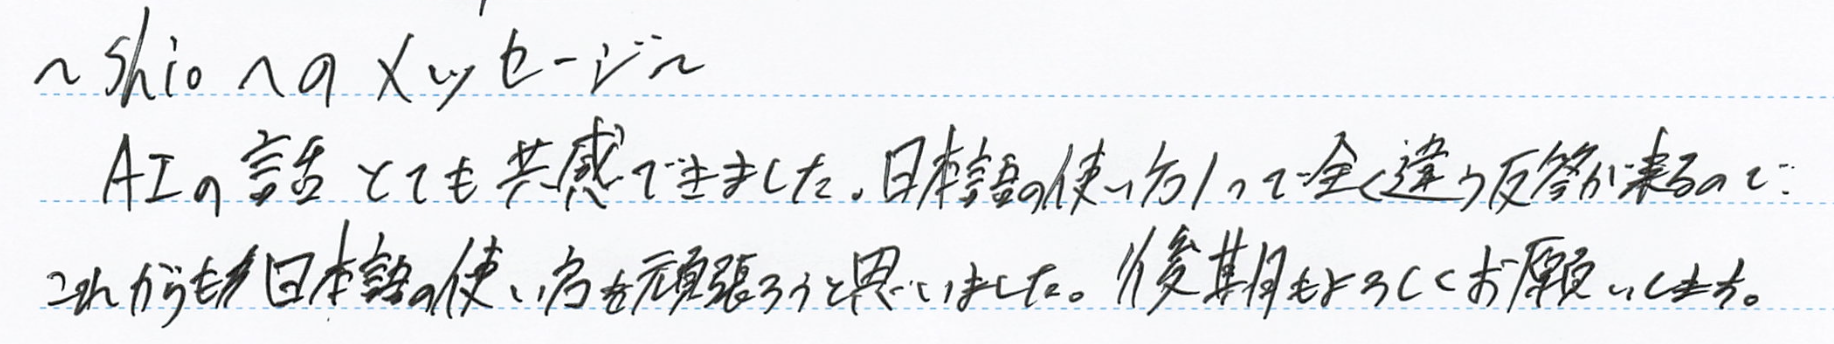 ~Shioへのメッセージ~
AIの話とても共感できました。日本語の使い方1つで全く違う反答が来るので
これからも日本語の使い方を頑張ろうと思いました。後期もよろしくお願いします。